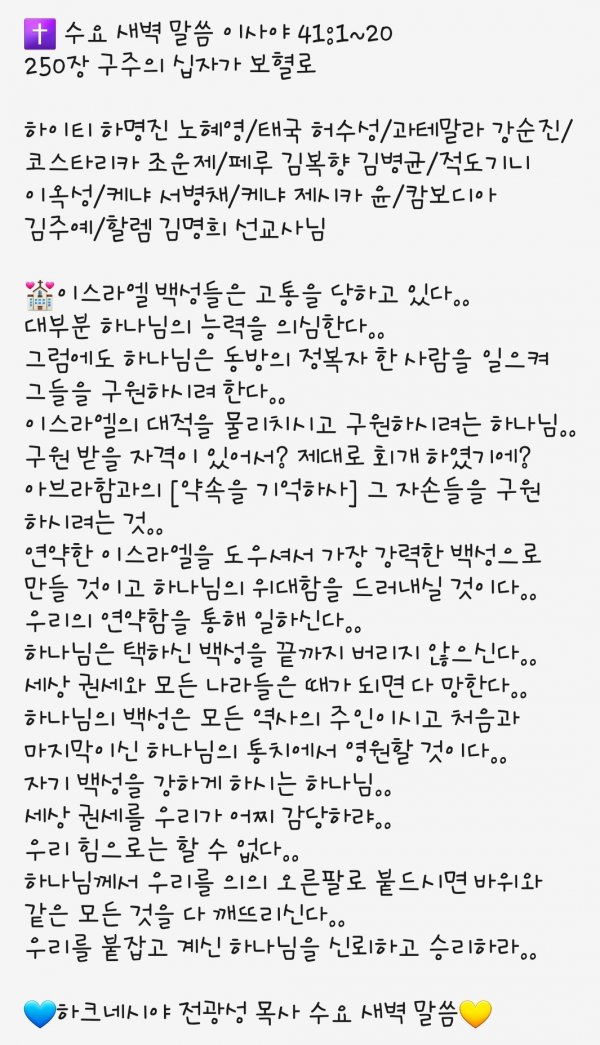 ✝️ 수요 새벽 말씀 이사야 41:1~20
250장 구주의 십자가 보혈로
하이티 하명진 노혜영/태국 허수성/과테말라 강순진/
코스타리카 조운제/페루 김복향 김병균/적도기니
이옥성/케냐 서병채/케냐 제시카 윤/캄보디아
김주예/할렘 김명희 선교사님
💒이스라엘 백성들은 고통을 당하고 있다..
대부분 하나님의 능력을 의심한다..
그럼에도 하나님은 동방의 정복자 한 사람을 일으켜
그들을 구원하시려 한다..
이스라엘의 대적을 물리치시고 구원하시려는 하나님..
구원 받을 자격이 있어서? 제대로 회개 하였기에?
아브라함과의 [약속을 기억하사] 그 자손들을 구원
하시려는 것..
연약한 이스라엘을 도우셔서 가장 강력한 백성으로
만들 것이고 하나님의 위대함을 드러내실 것이다..
우리의 연약함을 통해 일하신다..
하나님은 택하신 백성을 끝까지 버리지 않으신다..
세상 권세와 모든 나라들은 때가 되면 다 망한다..
하나님의 백성은 모든 역사의 주인이시고 처음과
마지막이신 하나님의 통치에서 영원할 것이다..
자기 백성을 강하게 하시는 하나님..
세상 권세를 우리가 어찌 감당하랴..
우리 힘으로는 할 수 없다..
하나님께서 우리를 의의 오른팔로 붙드시면 바위와
같은 모든 것을 다 깨뜨리신다..
우리를 붙잡고 계신 하나님을 신뢰하고 승리하라..
💙하크네시야 전광성 목사 수요 새벽 말씀💛